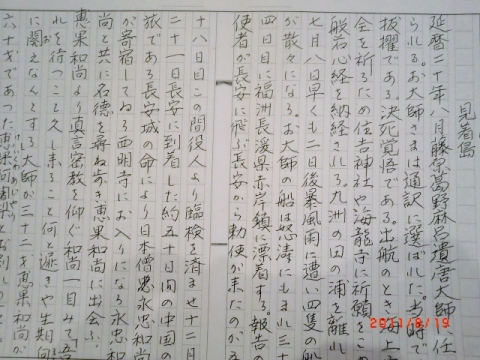 見着島
延暦二十年八月藤原葛野麻呂遣唐大師に任
られる。お大師さまは通訳に選ばれた。当時で
抜擢である決死覚悟である。出航のとき海上
全を祈るため住吉神社や海龍寺に祈願をこ
般若心経を納経される。九洲の田の浦を離れ
七月八日早くも二日後暴風雨に遭い四隻の船
が散々になる。お大師の船は怒濤にもまれ三十
四日目に福洲長渓県赤岸鎮に漂着する。報告の
使者が長安に飛ぶ長安から勅使が来たのが五
十八日目この間役人より臨検を済ませ十二月
二十一日長安に到着した約五十日間の中国の
旅である長安城の命により日本僧恵永忠和尚
が寄宿してゐる西明寺にお入りになる永忠和
尚と共に名徳を尋ね歩き恵果和尚に出会ふ
恵果和尚より真言密教を仰ぐ和尚一目みて「吾
れを待つこと久し来ること何と遅きや生期向
に闕えなんとする大師が三十二才恵果和尚が
六十才であった
2011/8/19